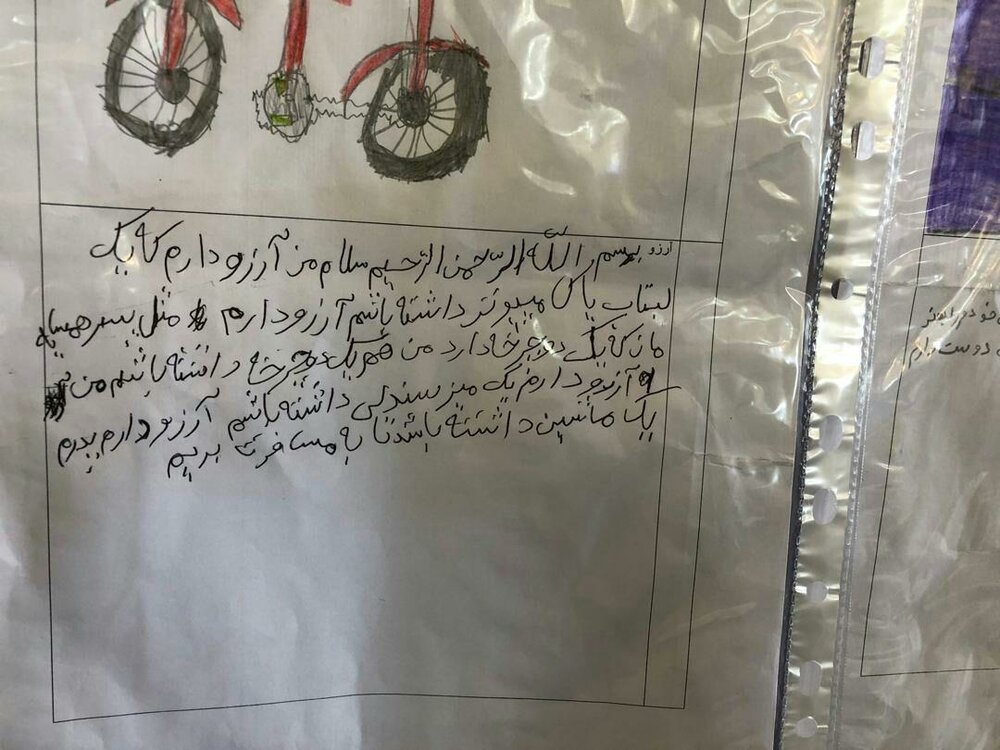 آرزو بسم الله الرحمن الرحیم سلام من آرزو دارم که یک
لبتاب یا کامپیوتر داشته باشم آرزو دارم مثل پسر همسایه
مان که یک دوچرخا دارد من هم یک دوچرخا داشته باشم من
آرزو دارم یک میز سندلی داشته باشم آرزو دارم پدرم
یک ماشین داشته باشد تا به مسافرت بریم
خودم
دوست دارم